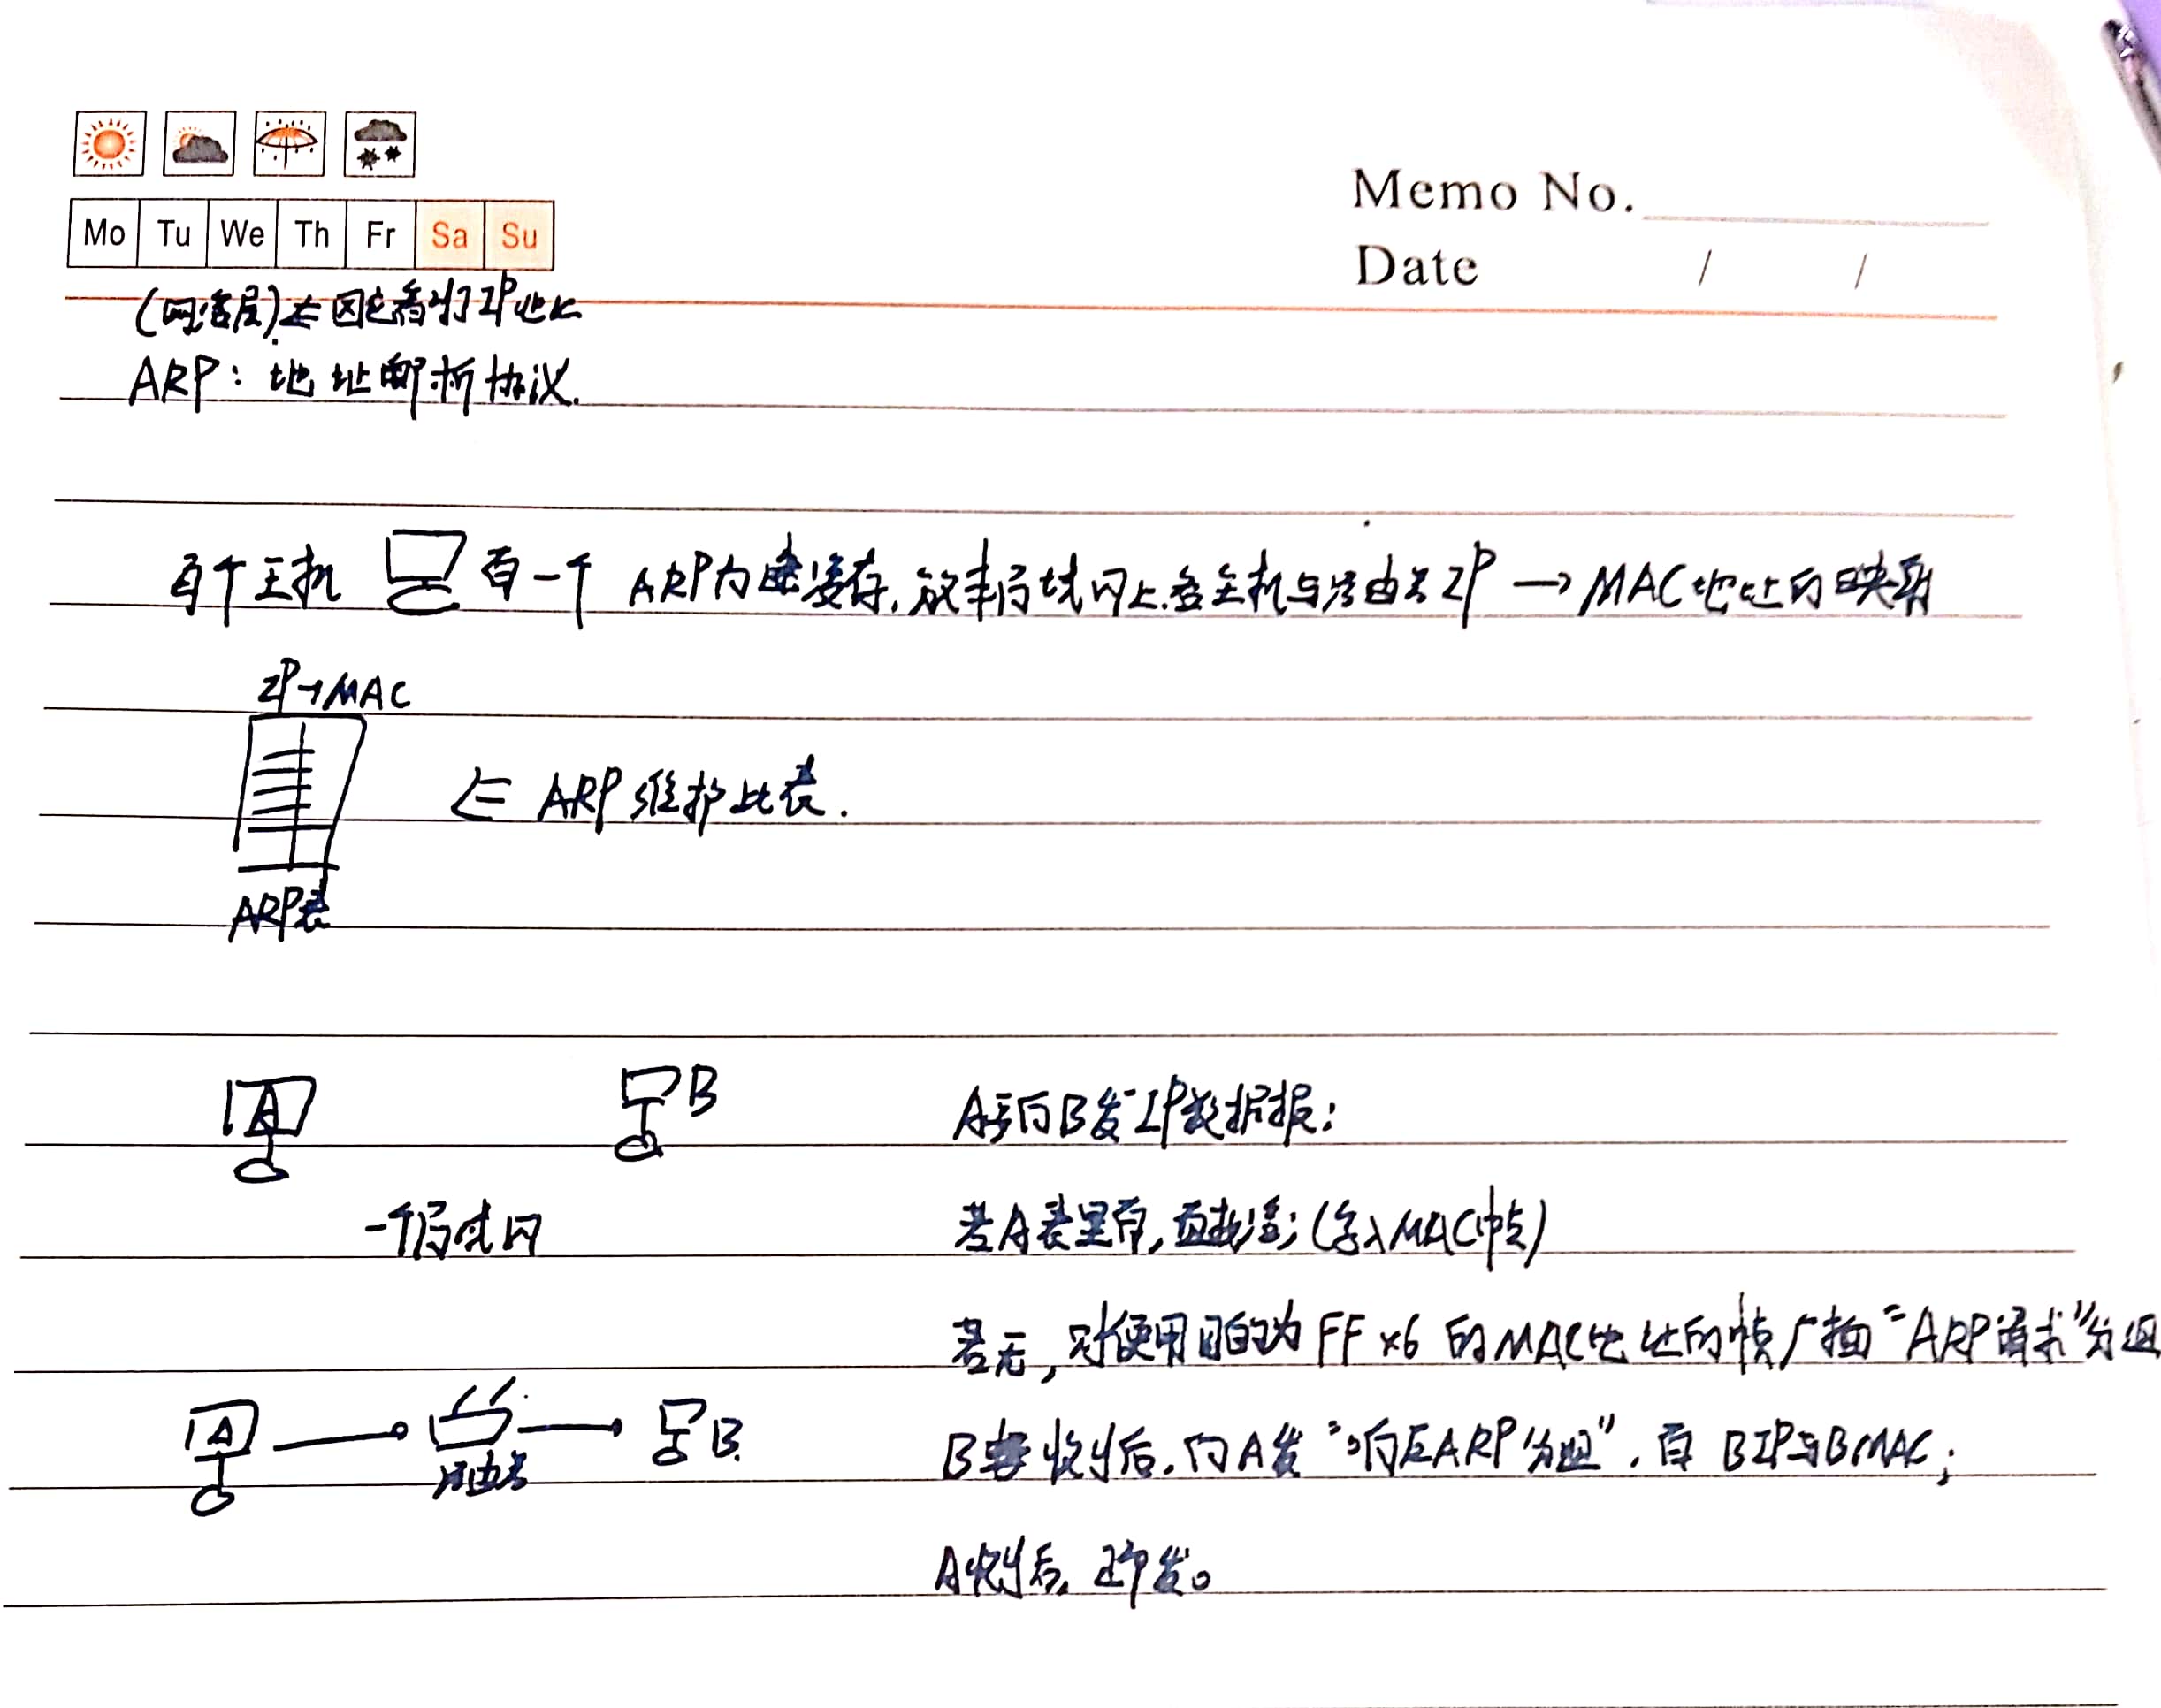 Memo No.
Mo Tu We Th Fr Sa Su
Date / /
(网络层) ⇐ 因它看到了IP地址
ARP: 地址解析协议.
每个主机 有一个 ARP内 缓存, 放本局域网上各主机与路由器 IP → MAC 地址的映射
IP→MAC
⇐ ARP 维护此表.
ARP表
A
B
A要向B发IP数据报:
一个局域网
若A表里有, 直接 ; (写入MAC帧)
若无, 则使用目的为 FF ×6 的MAC地址的帧广播 "ARP请求" 分组
A
B.
路由器
B 收到后, 向A发 "响应ARP分组", 有 BIP与BMAC;
A收到后, 即发。